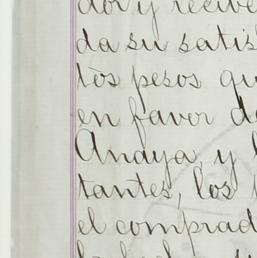 dor y recibe
da su satis
tos pesos qu
en favor de
Anaya, y l
tantes, los
el comprad